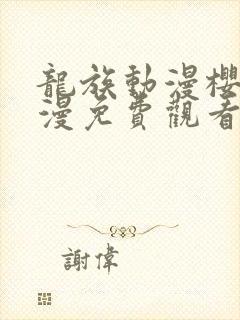 龍族動漫櫻
漫免費觀看
謝偉